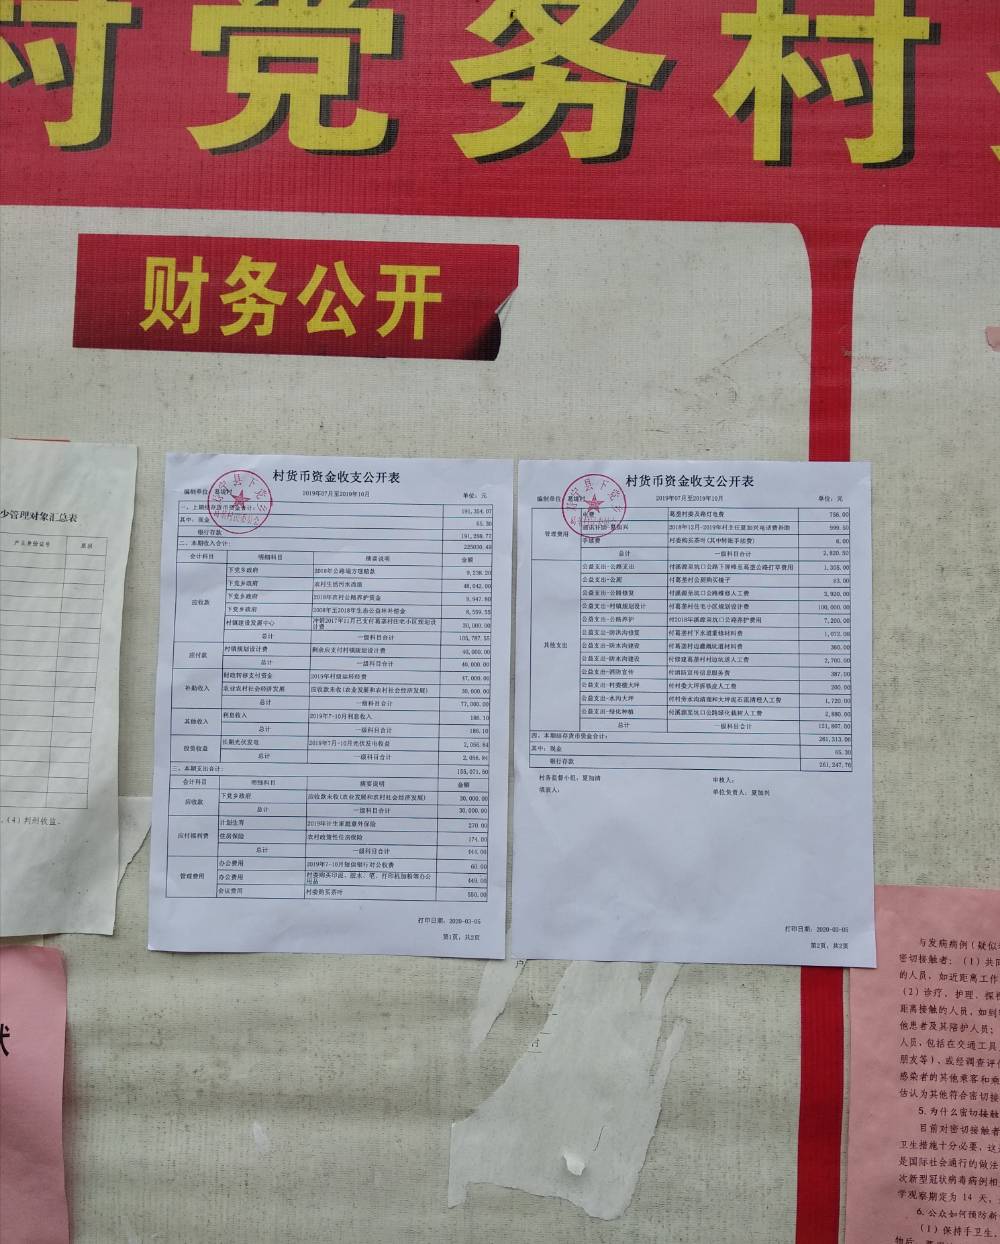 村党务村
财务公开
少管理对象汇总表
(4)判刑收益。
村货币资金收支公开表
编制单位：葛垄村 2019年07月至2019年10月 单位：元
一、上期结存货币资金合计： 191,354.07
其中：现金 65.30
银行存款 191,288.77
二、本期收入合计： 225030.49
会计科目 明细科目 摘要说明 金额
应收款
下党乡政府 9,238.20
下党乡政府 农村生活污水改造 48,042.00
下党乡政府 2018年农村公路养护资金 9,947.80
下党乡政府 2008年至2018年生态公益林补偿金 8,559.55
村镇建设发展中心 冲销2017年11月已支付葛垄村住宅小区规划设计费 30,000.00
总计 一级科目合计 105,787.55
应付款
村镇规划设计费 剩余应支付村镇规划设计费 40,000.00
总计 一级科目合计 40,000.00
补助收入
财政转移支付资金 2019年村级运转经费 47,000.00
农业农村社会经济发展 应收款未收(农业发展和农村社会经济发展) 30,000.00
总计 一级科目合计 77,000.00
其他收入
利息收入 2019年7-10月利息收入 186.10
总计 一级科目合计 186.10
投资收益
长期光伏发电 2019年7月-10月光伏发电收益 2,056.84
总计 一级科目合计 2,056.84
三、本期支出合计： 155,071.50
会计科目 明细科目 摘要说明 金额
应收款
下党乡政府 应收款未收(农业发展和农村社会经济发展) 30,000.00
总计 一级科目合计 30,000.00
应付福利费
计划生育 2019年计生家庭意外保险 270.00
住房保险 农村政策性住房保险 174.00
总计 一级科目合计 444.00
管理费用
办公费用 2019年7-10月短信银行对公收费 60.00
办公费用 村委购买印泥、胶水、笔、打印机加粉等办公用品 449.00
会议费用 村委购买茶叶 550.00
打印日期：2020-03-05
第1页，共2页
村货币资金收支公开表
编制单位：葛垄村 2019年07月至2019年10月 单位：元
管理费用
电费 葛垄村委及路灯电费 756.00
2018年12月-2019年村主任夏如兴电话费补助 999.50
手续费 村委购买茶叶(其中转账手续费) 6.00
总计 一级科目合计 2,820.50
其他支出
公益支出-公路支出 1,305.00
公益支出-公厕 付葛垄村公厕购买梯子 83.00
公益支出-公路修复 付溪源至坑口公路维修人工费 3,920.00
公益支出-村镇规划设计 付葛垄村住宅小区规划设计费 100,000.00
公益支出-公路养护 付2018年溪源至坑口公路养护费用 7,200.00
公益支出-防洪沟修复 付葛垄村下水道重修材料费 1,072.00
公益支出-防水沟建设 360.00
公益支出-防水沟建设 2,700.00
公益支出-消防宣传 付消防宣传信息服务费 387.00
公益支出-村委楼大坪 付村委大坪拆铁皮人工费 200.00
公益支出-水沟大坪 付村旁水沟清理和大坪泥石流清理人工费 1,720.00
公益支出-绿化种植 付溪源至坑口公路绿化栽树人工费 2,880.00
总计 一级科目合计 121,807.00
四、本期结存货币资金合计： 261,313.06
其中：现金 65.30
银行存款 261,247.76
村务监督小组：夏如清 审核人：
填表人： 单位负责人：夏如兴
打印日期：2020-03-05
第2页，共2页
与发病病例（疑似
密切接触者：（1）共同
的人员，如近距离工作
（2）诊疗、护理、探
距离接触的人员，如到
他患者及其陪护人员；
人员,包括在交通工具
朋友等）、或经调查评
感染者的其他乘客和乘
估认为其他符合密切接
5.为什么密切接触
目前对密切接触者
卫生措施十分必要，这
是国际社会通行的做法
次新型冠状病毒病例相
学观察期定为 14 天，
6.公众如何预防新
（1）保持手卫生。